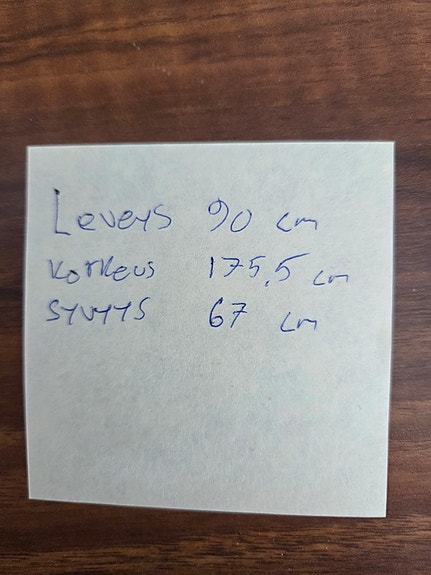 Leveys 90 cm
Korkeus 175,5 cm
Syvyys 67 cm